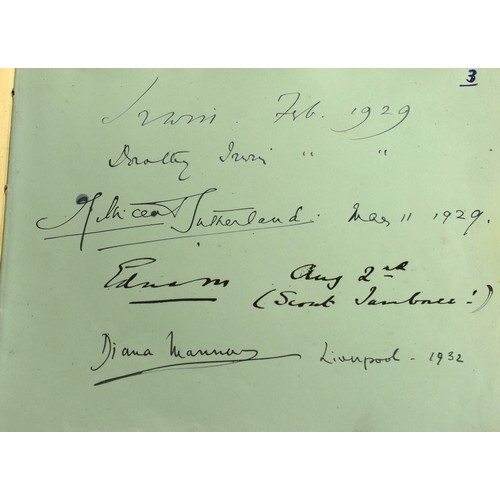 3
Irwin Feb. 1929
Dorothy Irwin " "
Millicent Sutherland. May 11 1929.
Ednam Aug 2nd
(Scout Jamboree!)
Diana Manners Liverpool - 1932